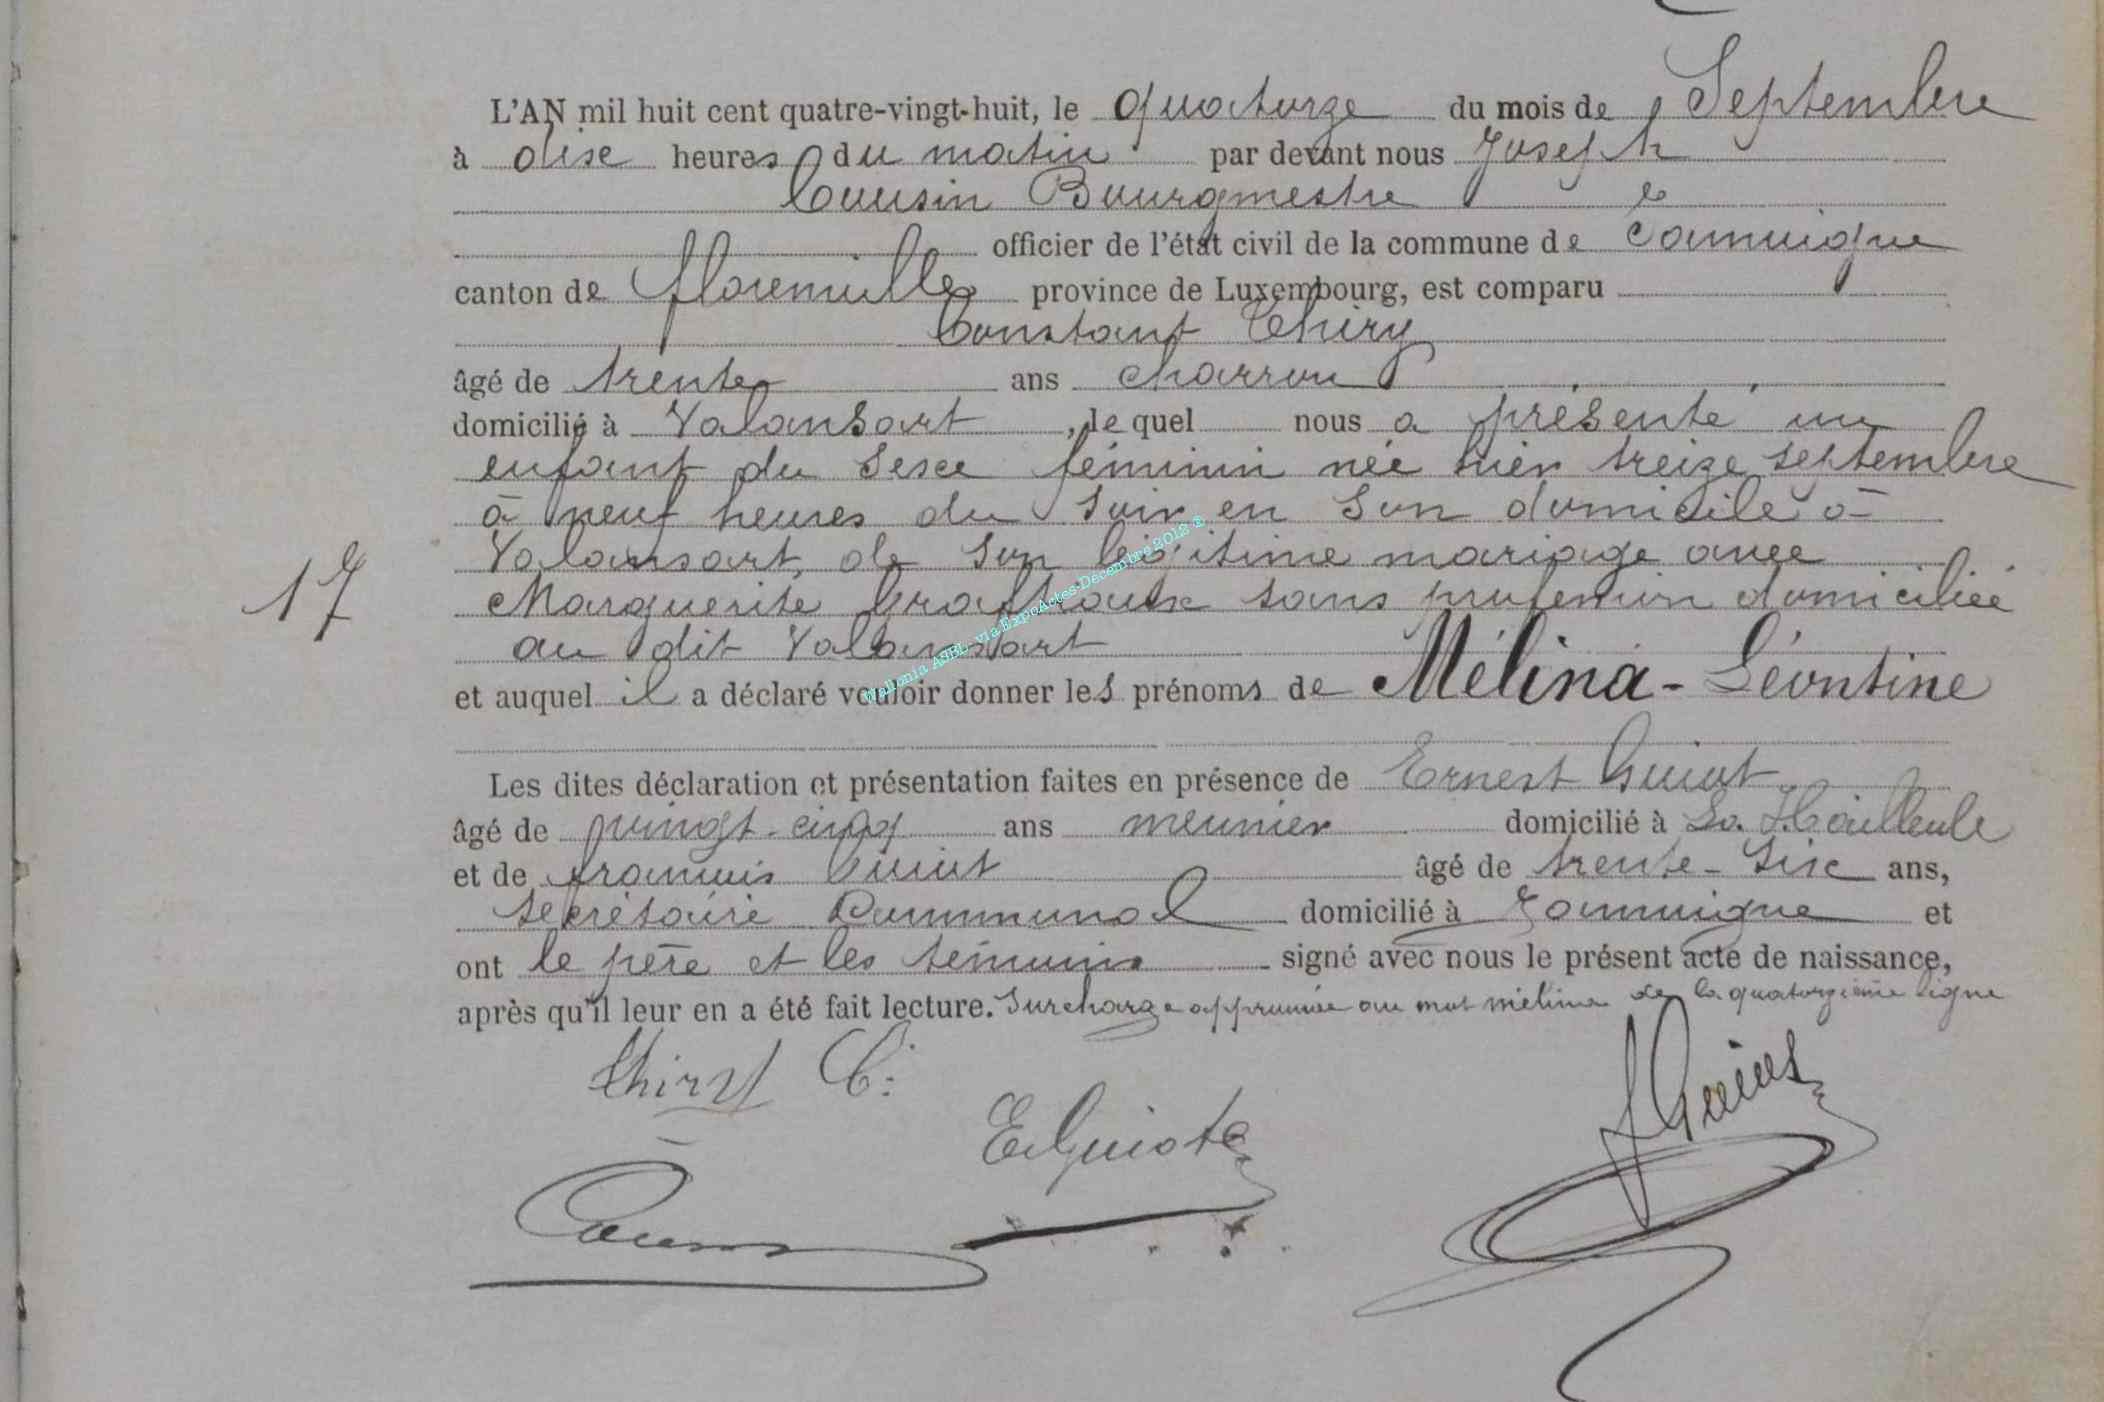 L'AN mil huit cent quatre-vingt-huit, le quatorze du mois de Septembre
à dix heures du matin par devant nous Joseph
Cousin Bourgmestre
officier de l'état civil de la commune de Jamoigne
canton de florenville province de Luxembourg, est comparu
Constant Thiry
âgé de trente ans charron
domicilié à Valansart, lequel nous a présenté un
enfant du sexe féminin née hier treize septembre
à neuf heures du soir en son domicile à
Valansart, de son légitime mariage avec
17
Marguerite sans profession domiciliée
au dit Valansart
et auquel il a déclaré vouloir donner les prénoms de Mélina-Léontine
Les dites déclaration et présentation faites en présence de Ernest Guiot
âgé de vingt-cinq ans meunier domicilié à La Hailleule
et de françois Guiot âgé de trente-six ans,
secrétaire Communal domicilié à Jamoigne et
ont le père et les témoins signé avec nous le présent acte de naissance,
après qu'il leur en a été fait lecture. Surcharge approuvée au mot mélina de la quatorzième ligne
Thiry C:
E Guiot
F Guiot
Cousin
Wallonia ASBL - via ExpoActes-Décembre 2012 ©